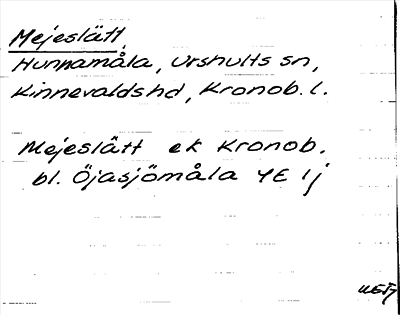 Mejeslätt,
Hunnamåla, Urshults sn,
Kinnevalds hd, Kronob. l.
Mejeslätt ek Kronob.
bl. Öjasjömåla 4E 1j